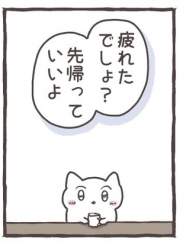 疲れた
でしょ?
先帰って
いいよ